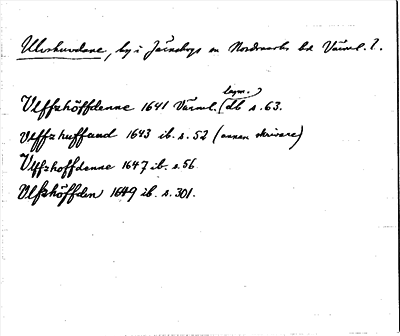 Ulvshuvdane, by i Järnskogs sn Nordmarks hd Värml. l.
Vlffzhöffdenne 1641 Värml. (lagm.) db s. 63.
Vlffzhuffaud 1643 ib. s. 52 (annan skrivare)
Vlffzhoffdenne 1647 ib. s. 56.
Vlfzhöffden 1649 ib. s. 301.